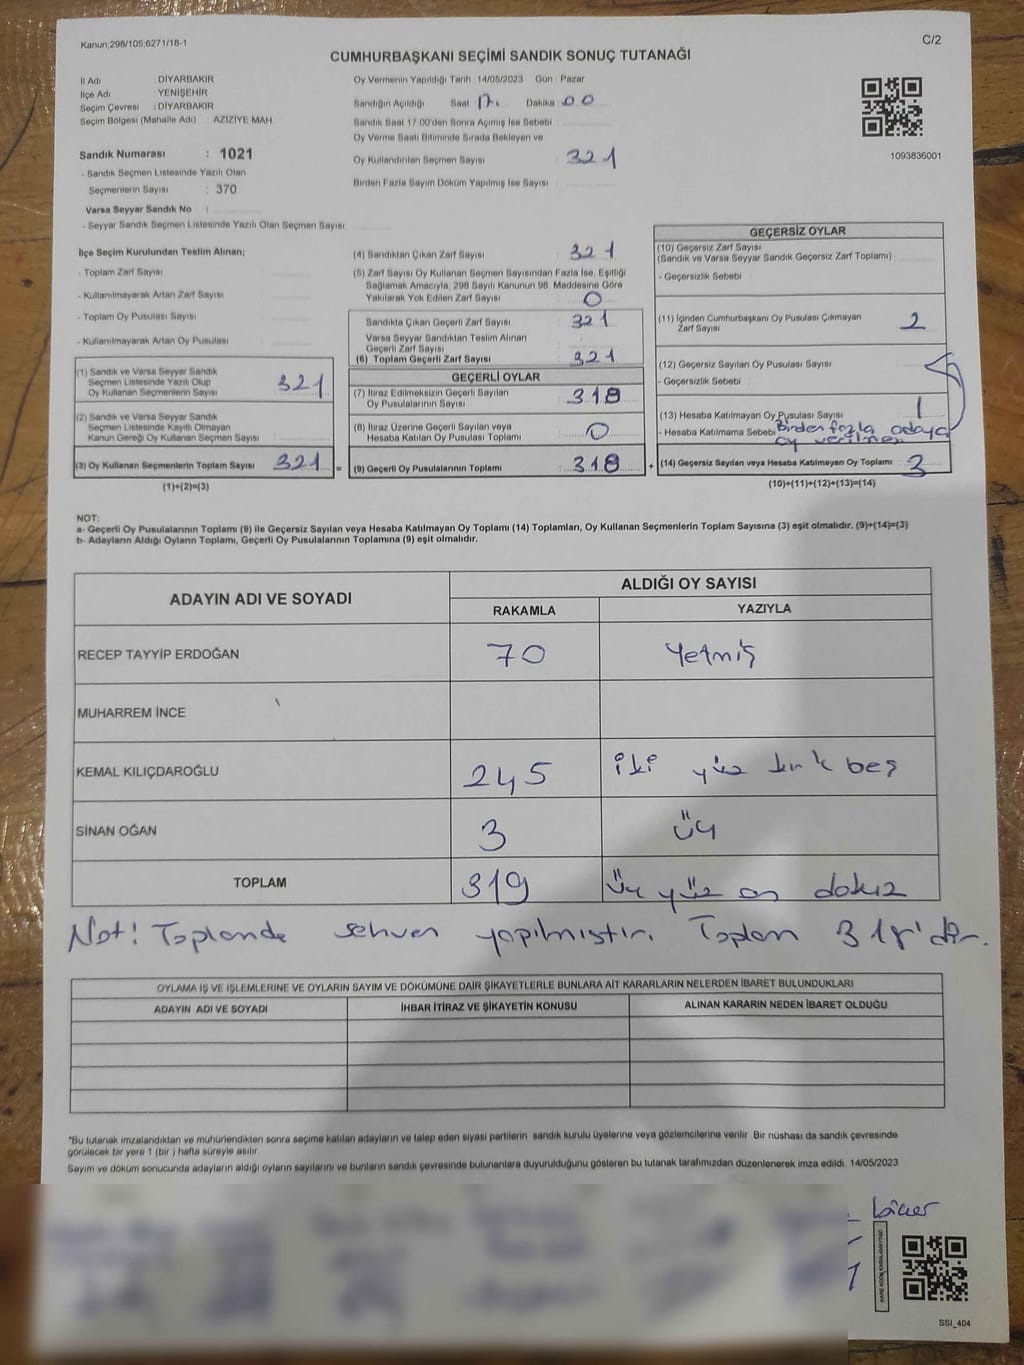 Kanun;298/105;6271/18-1
C/2
CUMHURBAŞKANI SEÇİMİ SANDIK SONUÇ TUTANAĞI
İl Adı : DİYARBAKIR
İlçe Adı : YENİŞEHİR
Seçim Çevresi : DİYARBAKIR
Seçim Bölgesi (Mahalle Adı) : AZİZİYE MAH.
Sandık Numarası : 1021
- Sandık Seçmen Listesinde Yazılı Olan
Seçmenlerin Sayısı : 370
Varsa Seyyar Sandık No :
- Seyyar Sandık Seçmen Listesinde Yazılı Olan Seçmen Sayısı:
Oy Vermenin Yapıldığı Tarih : 14/05/2023 Gün : Pazar
Sandığın Açıldığı Saat 17. Dakika 00
Sandık Saat 17:00'den Sonra Açımış İse Sebebi :
Oy Verme Saati Bitiminde Sırada Bekleyen ve
Oy Kullandırılan Seçmen Sayısı : 321
Birden Fazla Sayım Döküm Yapılmış İse Sayısı :
1093836001
İlçe Seçim Kurulundan Teslim Alınan;
- Toplam Zarf Sayısı :
- Kullanılmayarak Artan Zarf Sayısı :
- Toplam Oy Pusulası Sayısı :
- Kullanılmayarak Artan Oy Pusulası :
(1) Sandık ve Varsa Seyyar Sandık
Seçmen Listesinde Yazılı Olup
Oy Kullanan Seçmenlerin Sayısı : 321
(2) Sandık ve Varsa Seyyar Sandık
Seçmen Listesinde Kayıtlı Olmayan
Kanun Gereği Oy Kullanan Seçmen Sayısı :
(3) Oy Kullanan Seçmenlerin Toplam Sayısı : 321 =
(1)+(2)=(3)
(4) Sandıktan Çıkan Zarf Sayısı : 321
(5) Zarf Sayısı Oy Kullanan Seçmen Sayısından Fazla İse, Eşitliği
Sağlamak Amacıyla, 298 Sayılı Kanunun 98. Maddesine Göre
Yakılarak Yok Edilen Zarf Sayısı : 0
Sandıkta Çıkan Geçerli Zarf Sayısı : 321
Varsa Seyyar Sandıktan Teslim Alınan
Geçerli Zarf Sayısı :
(6) Toplam Geçerli Zarf Sayısı : 321
GEÇERLİ OYLAR
(7) İtiraz Edilmeksizin Geçerli Sayılan
Oy Pusulalarının Sayısı : 318
(8) İtiraz Üzerine Geçerli Sayılan veya
Hesaba Katılan Oy Pusulası Toplamı : 0
(9) Geçerli Oy Pusulalarının Toplamı : 318 +
GEÇERSİZ OYLAR
(10) Geçersiz Zarf Sayısı
(Sandık ve Varsa Seyyar Sandık Geçersiz Zarf Toplamı) :
- Geçersizlik Sebebi :
(11) İçinden Cumhurbaşkanı Oy Pusulası Çıkmayan
Zarf Sayısı : 2
(12) Geçersiz Sayılan Oy Pusulası Sayısı :
- Geçersizlik Sebebi :
(13) Hesaba Katılmayan Oy Pusulası Sayısı : 1
- Hesaba Katılmama Sebebi : Birden fazla adaya
oy verilmesi
(14) Geçersiz Sayılan veya Hesaba Katılmayan Oy Toplamı : 3
(10)+(11)+(12)+(13)=(14)
NOT:
a- Geçerli Oy Pusulalarının Toplamı (9) ile Geçersiz Sayılan veya Hesaba Katılmayan Oy Toplamı (14) Toplamları, Oy Kullanan Seçmenlerin Toplam Sayısına (3) eşit olmalıdır. (9)+(14)=(3)
b- Adayların Aldığı Oyların Toplamı, Geçerli Oy Pusulalarının Toplamına (9) eşit olmalıdır.
ADAYIN ADI VE SOYADI
ALDIĞI OY SAYISI
RAKAMLA YAZIYLA
RECEP TAYYİP ERDOĞAN 70 Yetmiş
MUHARREM İNCE
KEMAL KILIÇDAROĞLU 245 iki yüz kırk beş
SİNAN OĞAN 3 üç
TOPLAM 319 üç yüz on dokuz
Not! Toplamda sehven yapılmıştır. Toplam 318'dir.
OYLAMA İŞ VE İŞLEMLERİNE VE OYLARIN SAYIM VE DÖKÜMÜNE DAİR ŞİKAYETLERLE BUNLARA AİT KARARLARIN NELERDEN İBARET BULUNDUKLARI
ADAYIN ADI VE SOYADI İHBAR İTİRAZ VE ŞİKAYETİN KONUSU ALINAN KARARIN NEDEN İBARET OLDUĞU
*Bu tutanak imzalandıktan ve mühürlendikten sonra seçime katılan adayların ve talep eden siyasi partilerin sandık kurulu üyelerine veya gözlemcilerine verilir. Bir nüshası da sandık çevresinde
görülecek bir yere 1 (bir) hafta süreyle asılır.
Sayım ve döküm sonucunda adayların aldığı oyların sayılarını ve bunların sandık çevresinde bulunanlara duyurulduğunu gösteren bu tutanak tarafımızdan düzenlenerek imza edildi. 14/05/2023
KARE KODU KARALAMAYINIZ!
SSI_404